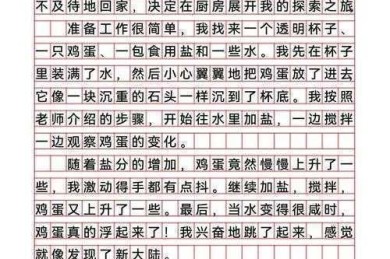 不及待地回家，决定在厨房展开我的探索之旅
准备工作很简单，我找来一个透明杯子、
一只鸡蛋、一包食用盐和一些水。我先在杯子
里装满了水，然后小心翼翼地把鸡蛋放了进去
它像一块沉重的石头一样沉到了杯底。我按照
老师介绍的步骤，开始往水里加盐，一边搅拌
一边观察鸡蛋的变化。
随着盐分的增加，鸡蛋竟然慢慢上升了一
些，我激动得手都有点抖。继续加盐，搅拌，
鸡蛋又上升了一些。最后，当水变得很咸时，
鸡蛋真的浮起来了！我兴奋地跳了起来，感觉
就像发现了新大陆。